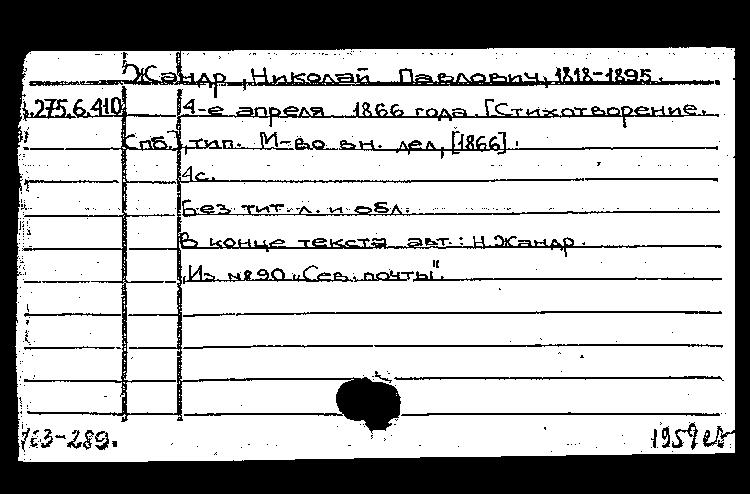 Жандр, Николай Павлович, 1818-1895.
.275.6.410 4-е апреля 1866 года. [Стихотворение.
Спб.], тип. М-во вн. дел, [1866].
4с.
Без тит. л. и обл.
В конце текста авт.: Н. Жандр.
Из №90 „Сев. почты".
163-289.